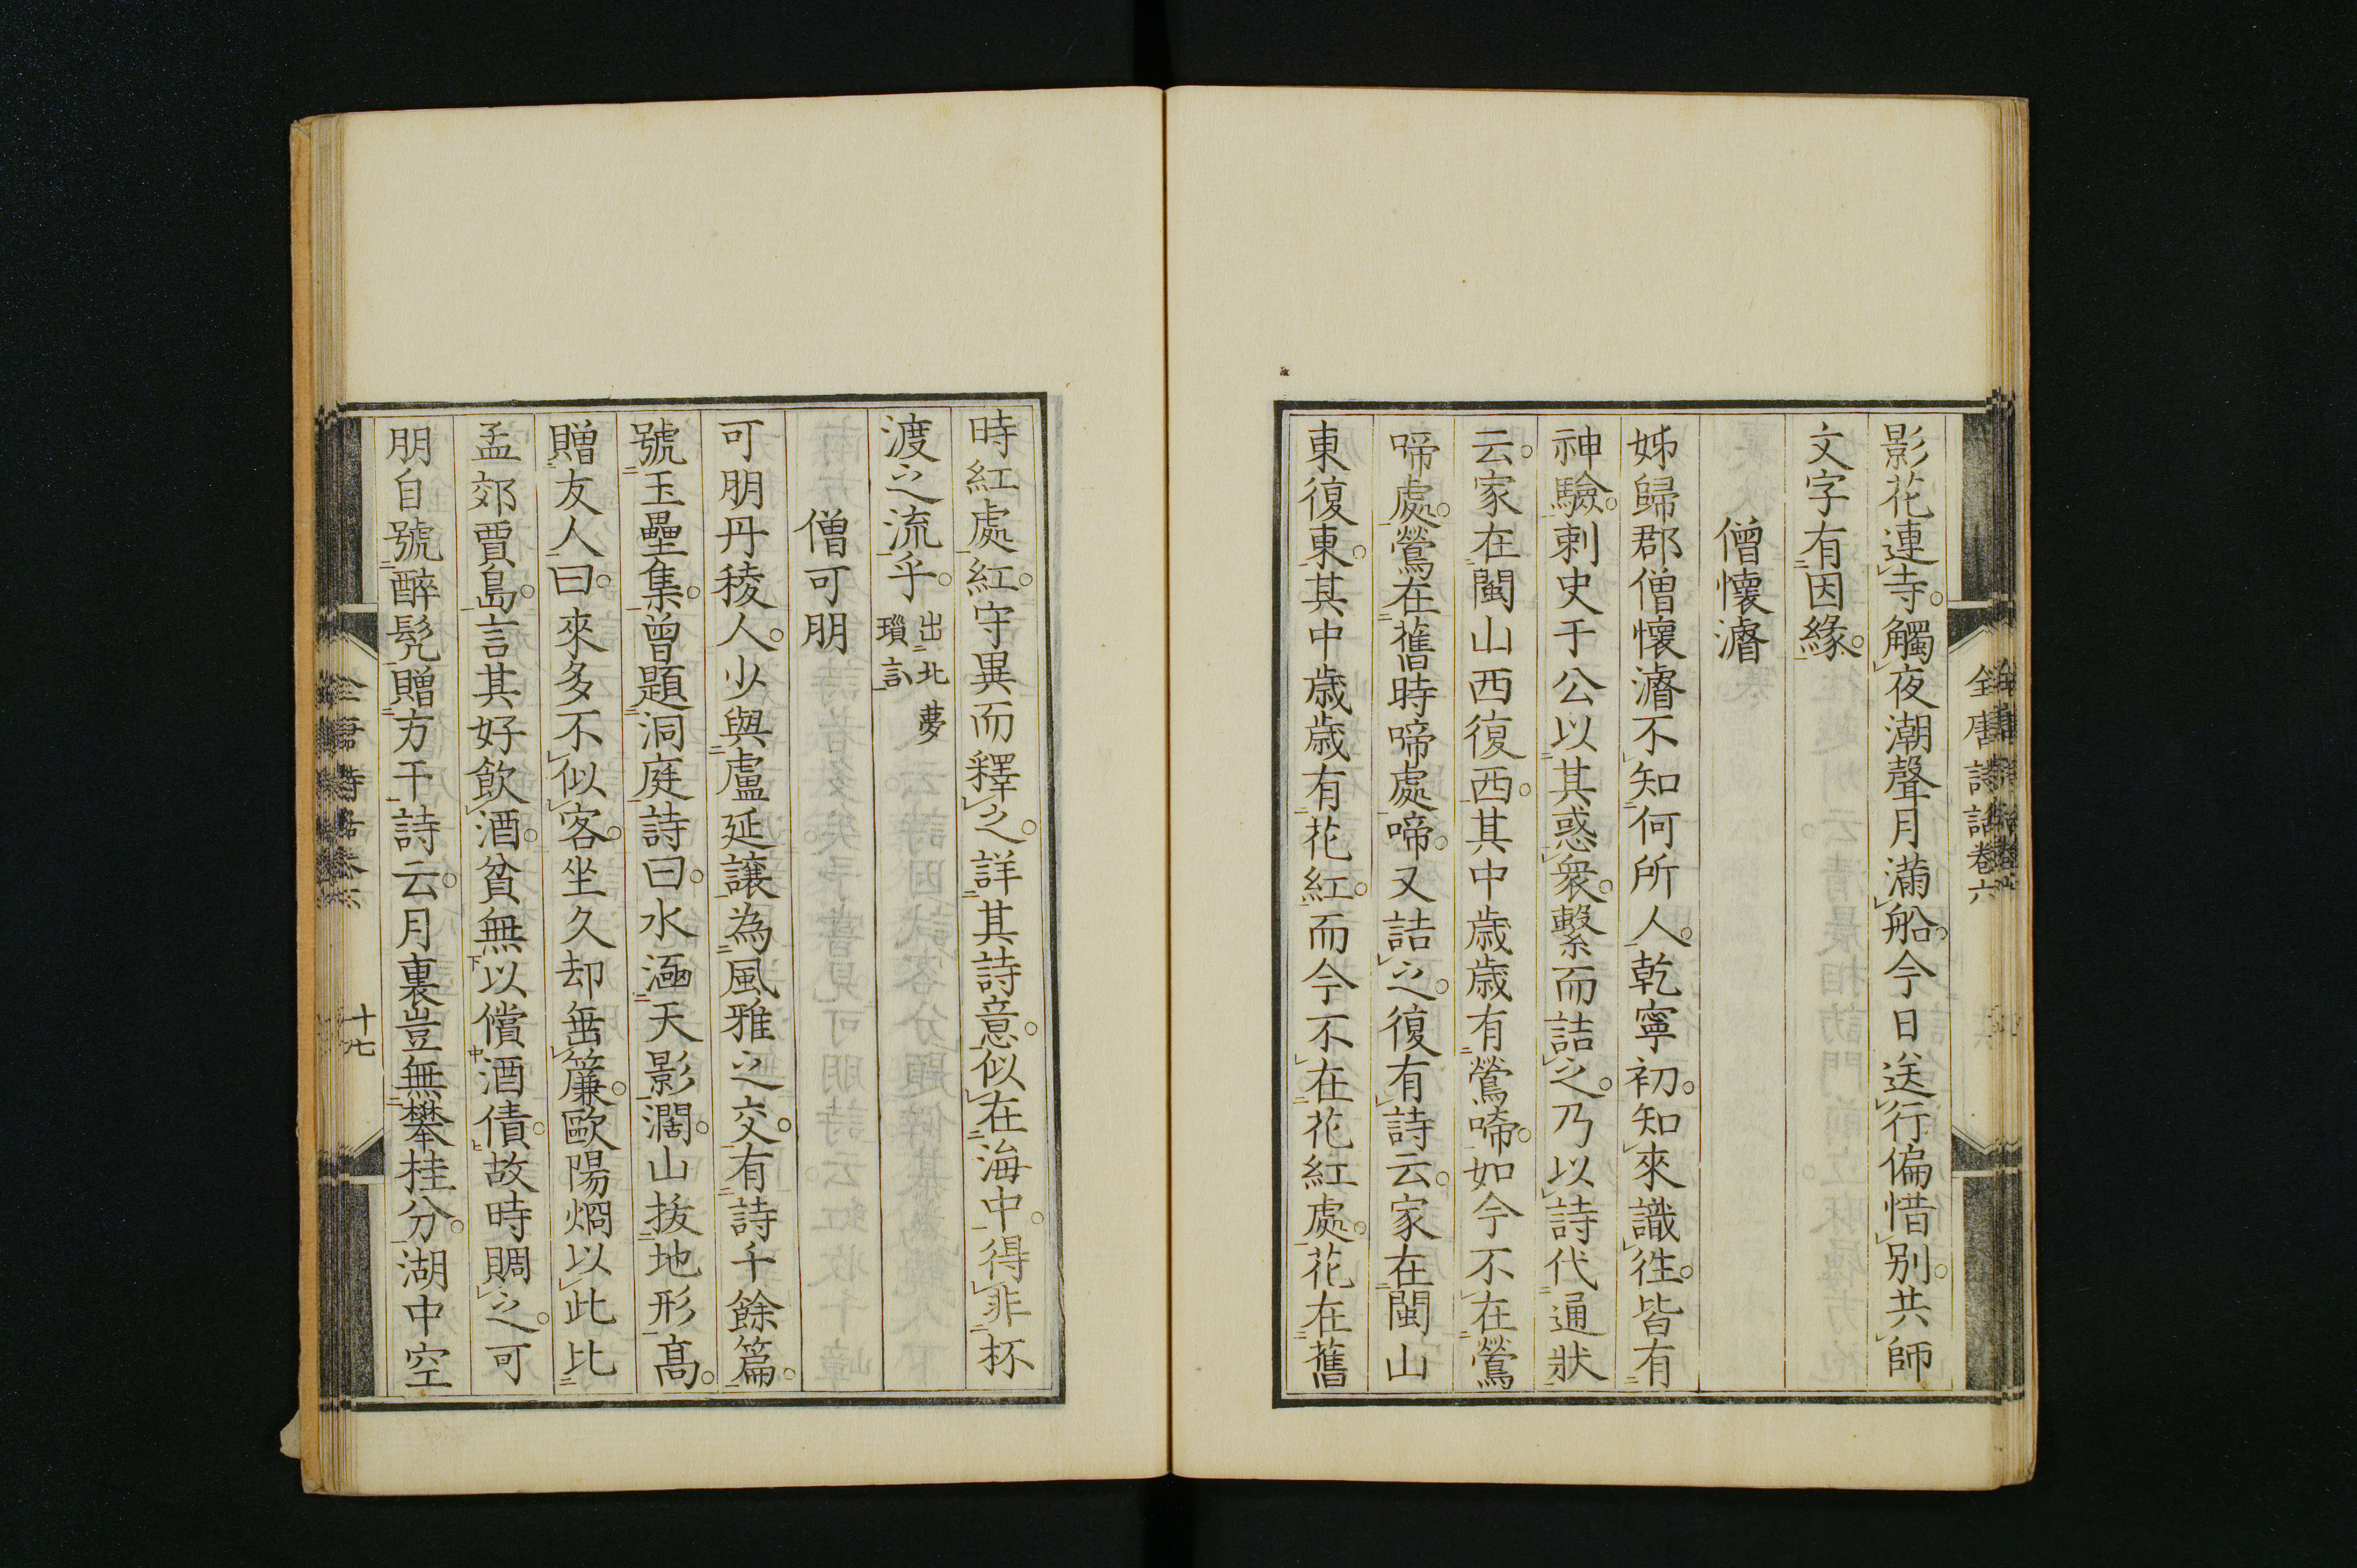 影花連寺。觸夜潮聲月滿船。今日送行偏惜别。共師
文字有因緣。
僧懷濬
姊歸郡僧懷濬不知何所人。乾寧初。知來識徃。皆有
神驗。刺史于公以其惑衆。繫而詰之。乃以詩代通狀
云。家在閩山西復西。其中歳歳有鶯啼。如今不在鶯
啼處。鶯在舊時啼處啼。又詰之。復有詩云。家在閩山
東復東。其中歳歳有花紅。而今不在花紅處。花在舊
全唐詩話卷六
時紅處紅。守異而釋之。詳其詩意。似在海中。得非杯
渡之流乎。出北夢
瑣言
僧可朋
可朋丹稜人。少與盧延讓為風雅之交。有詩千餘篇。
號玉壘集。曾題洞庭詩曰。水涵天影濶。山拔地形髙。
贈友人曰。來多不似客。坐久却垂簾。歐陽烱以此比
孟郊賈島。言其好飲酒。貧無以償酒債。故時賙之。可
朋自號醉髠。贈方干詩云。月裏豈無攀桂分。湖中空
十七